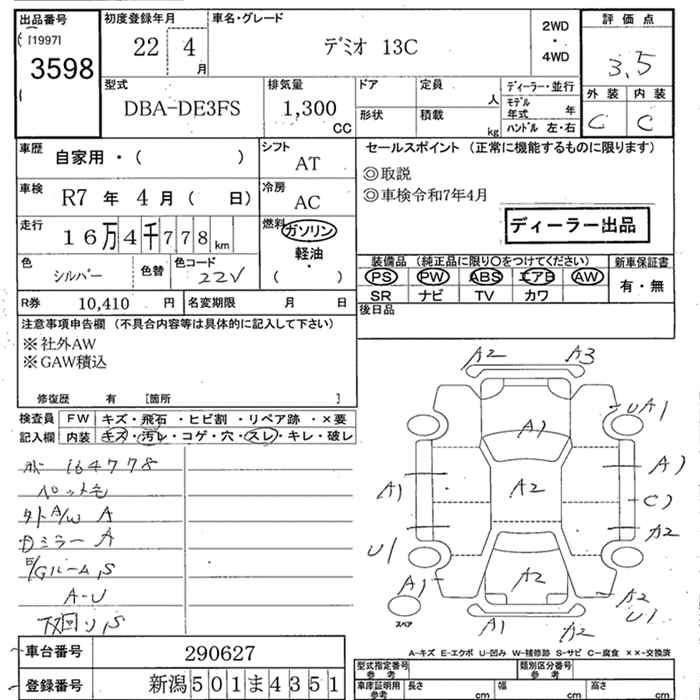 出品番号 初度登録年月 車名・グレード 2WD ・ 4WD 評価点
[1997]
3598
22 4 月 デミオ 13C 3.5
型式 排気量 ドア 定員 人 ディーラー・並行 外装 内装
DBA-DE3FS 1,300 CC 形状 積載 kg モデル年式 年 C C
ハンドル 左・右
車歴 自家用・( ) シフト AT セールスポイント (正常に機能するものに限ります)
◎取説
車検 R7 年 4 月 ( 日) 冷房 AC ◎車検令和7年4月
走行 16万4千778km 燃料 ガソリン 軽油 ・ ( ) ディーラー出品
色 シルバー 色替 色コード 22V
装備品 (純正品に限り○をつけてください) 新車保証書
PS PW ABS エアB AW 有・無
SR ナビ TV カワ
R券 10,410 円 名変期限 月 日 後日品
注意事項申告欄 (不具合内容等は具体的に記入して下さい)
※社外AW
※GAW積込
修復歴 有 [箇所 ]
検査員 FW キズ・飛石・ヒビ割・リペア跡・×要
記入欄 内装 キズ・汚レ・コゲ・穴・スレ・キレ・破レ
164778
ペット毛
外A/W A
Dミラー A
E/Gルーム S
A-U
下回り S
A2 A3
A1 UA1
A1 A2 A1
C1
U1 A2
A1 A2 A2
U1
スペア A1 A2
A-キズ E-エクボ U-凹み W-補修跡 S-サビ C-腐食 ××-交換済
車台番号 290627
登録番号 新潟501ま4351
型式指定番号 参考 類別区分番号 参考
車庫証明用 参考 長さ cm 幅 cm 高さ cm